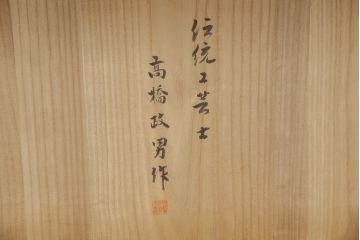 伝統工芸士
高橋政男作